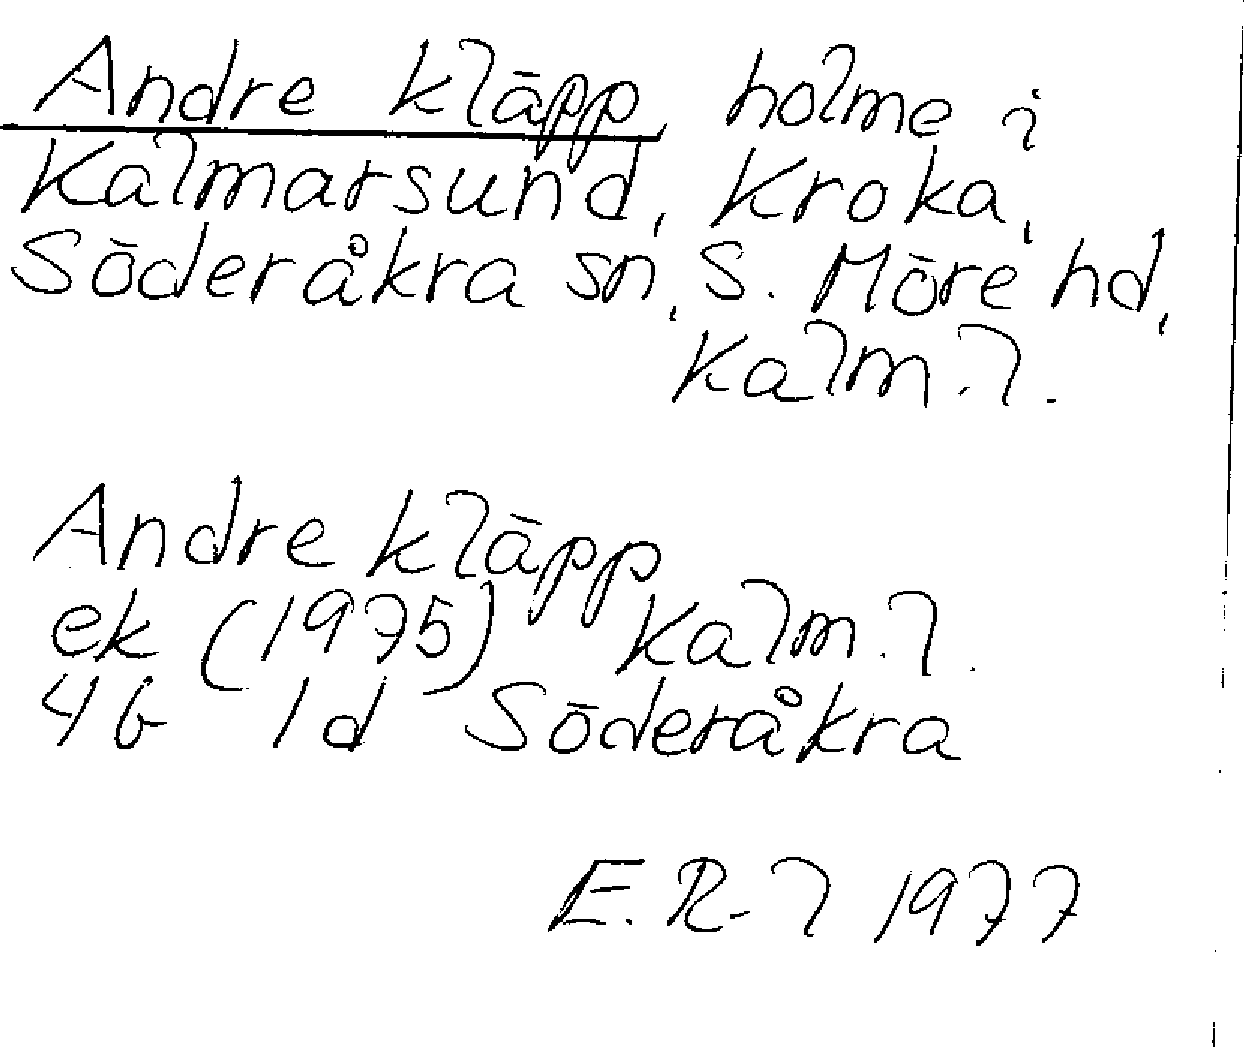 Andre kläpp, holme i
Kalmarsund, Kroka,
Söderåkra sn, S. Möre hd,
Kalm. l.
Andre kläpp
ek (1975) Kalm. l.
4 G 1d Söderåkra
E. R-l 1977